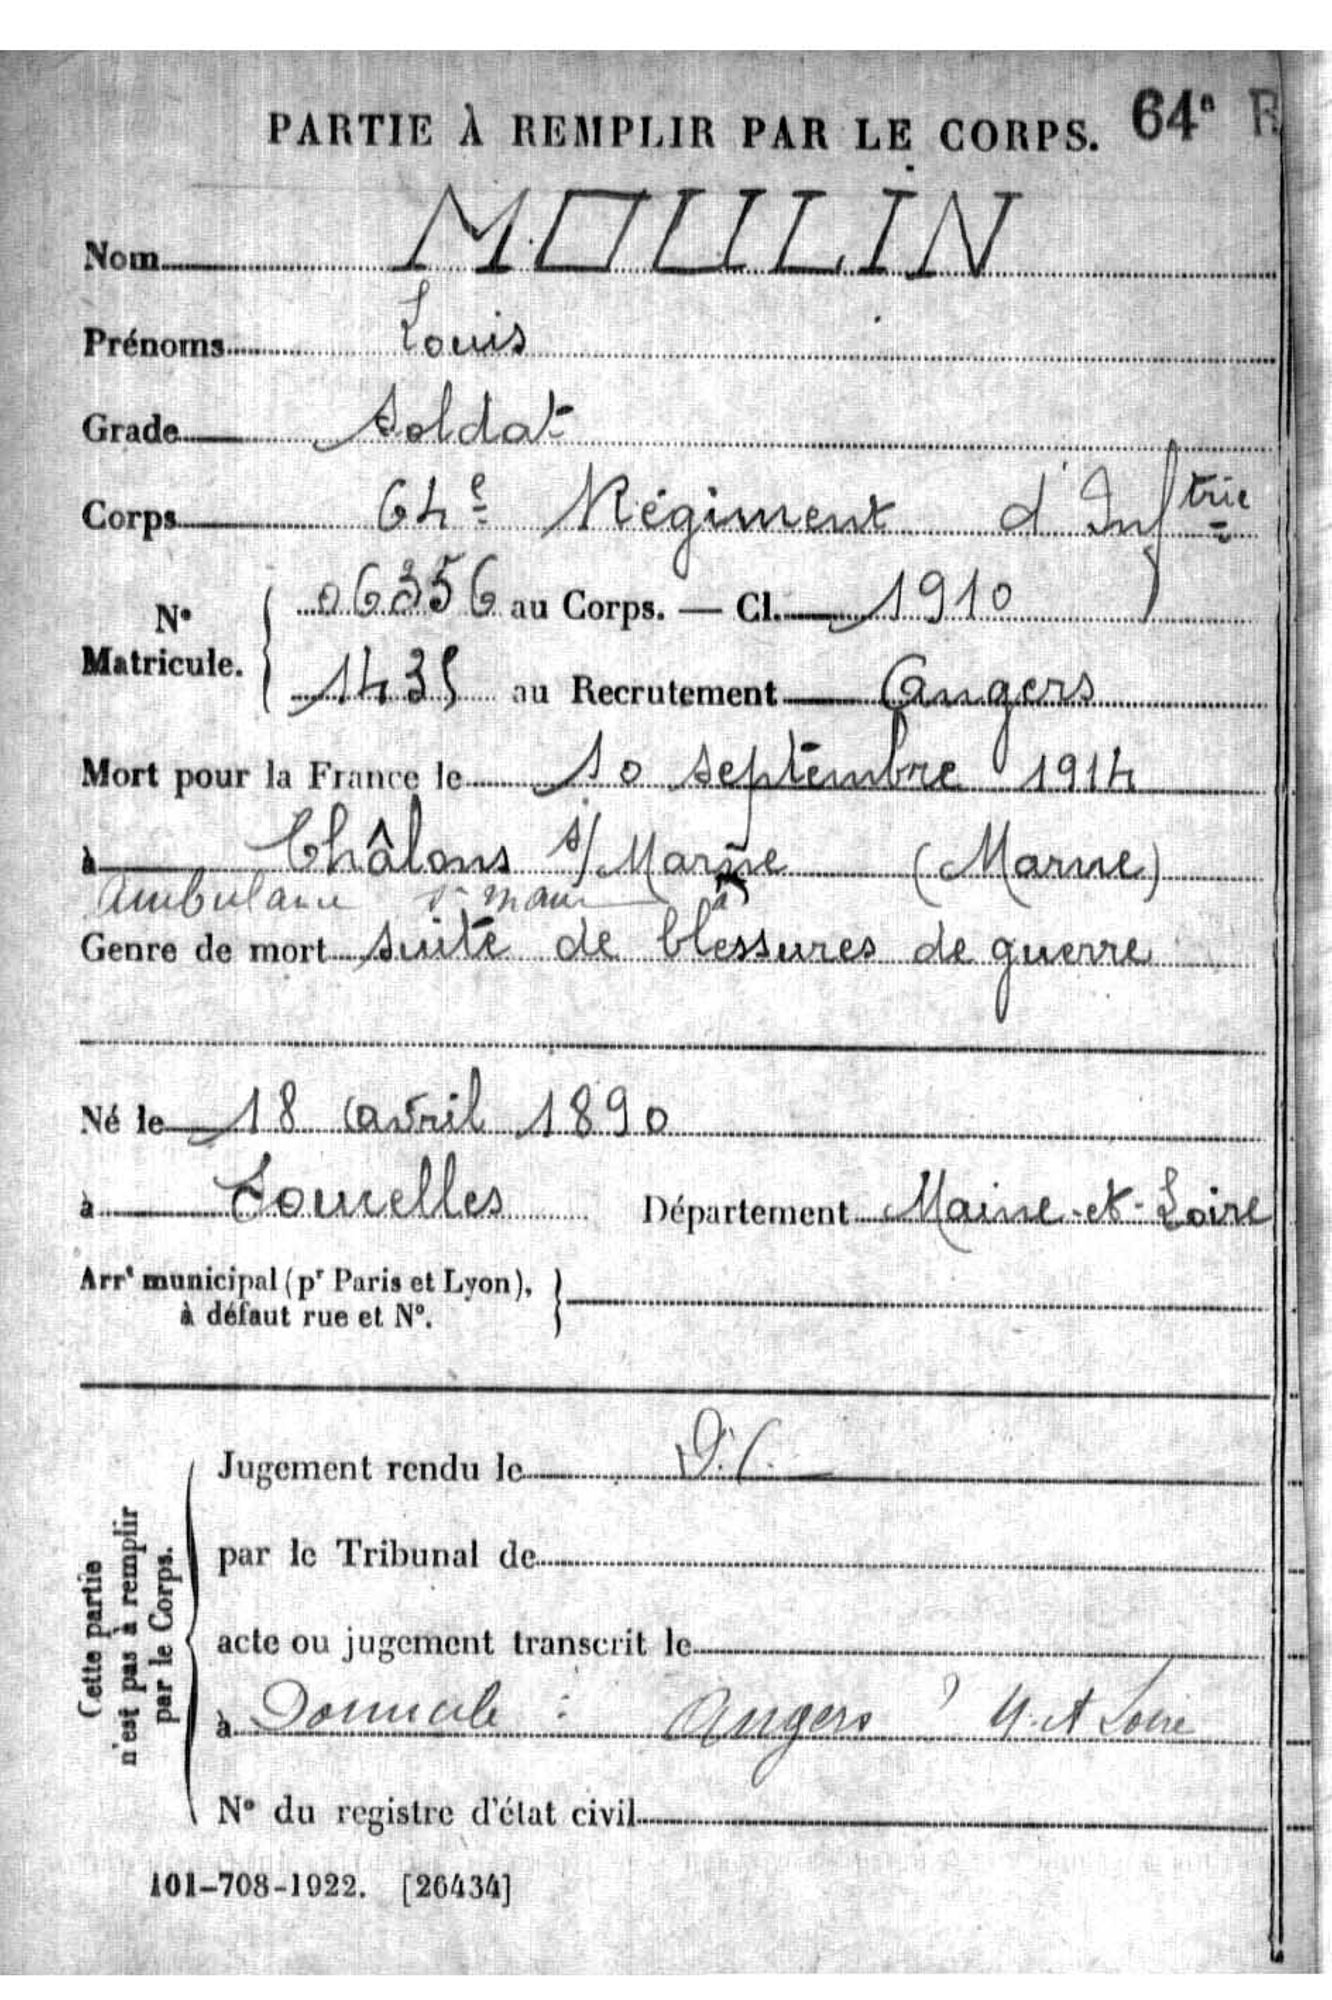 PARTIE À REMPLIR PAR LE CORPS. 64e R
Nom MOULIN
Prénoms Louis
Grade soldat
Corps 64e Régiment d'Inftrie
N° Matricule. 06356 au Corps. — Cl. 1910
1435 au Recrutement Angers
Mort pour la France le 10 septembre 1914
à Châlons s/ Marne (Marne)
Ambulance
Genre de mort suite de blessures de guerre
Né le 18 avril 1890
à Département Maine-et-Loire
Arrt municipal (pr Paris et Lyon),
à défaut rue et N°.
Cette partie
n'est pas à remplir
par le Corps.
Jugement rendu le
par le Tribunal de
acte ou jugement transcrit le
à Domicile : Angers M. et Loire
N° du registre d'état civil
101-708-1922. [26434]